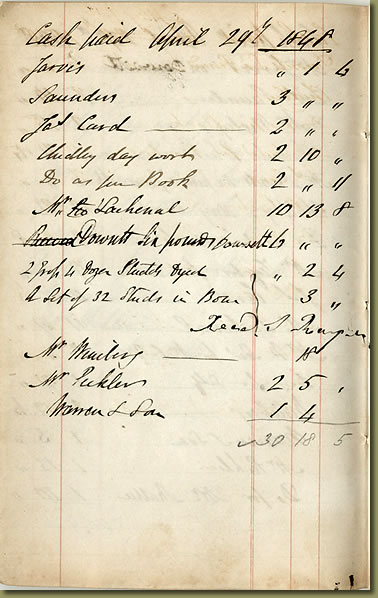 Cash paid April 29th 1848
Jarvis " 1 6
Saunders 3 " "
Jas Card 2 " "
Chidley day work 2 10 "
Do as per Book 2 " 11
Mr Lachenal 10 13 8
Dowsett Six pounds Dowsett 6 " "
2 Gross 4 Dozen Studs Dyed " 2 4
A Set of 32 Studs in Bone 3 "
Recd J
18
Mr 2 5 "
Warren & Son 1 4
30 18 5